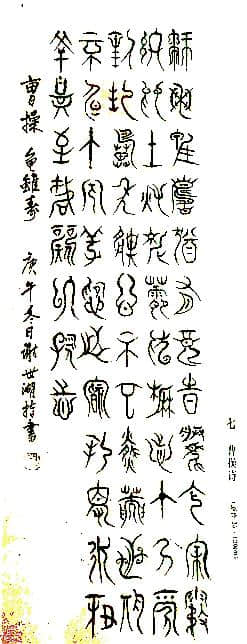 神龜雖壽猶有竟時騰蛇乘霧
終為土灰老驥伏櫪志在千里
烈士暮年壯心不已盈縮之期
不但在天養怡之福可得永年
幸甚至哉歌以詠志
曹操 龜雖壽 庚午冬日 書
七 曹操诗